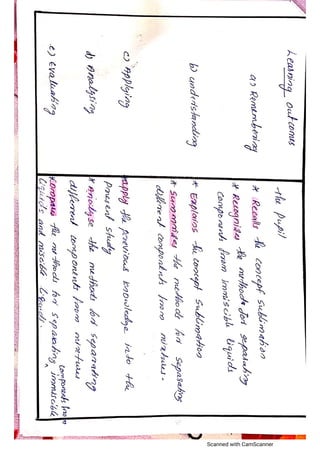 Learning outcomes
the pupil
a) Remembering
* Recalls the concept sublimation
* Recognizes the methods for separating
components from immiscible liquids
b) understanding
* Explains the concept sublimation
* Summarizes the methods for separating
different components from mixtures.
c) Applying
Apply the previous knowledge into the
present study
d) Analysing
* Analyse the methods for separating
different components from mixtures
e) Evaluating
Compares the methods for separating components from immiscible
liquids and miscible liquids.
Scanned with CamScanner